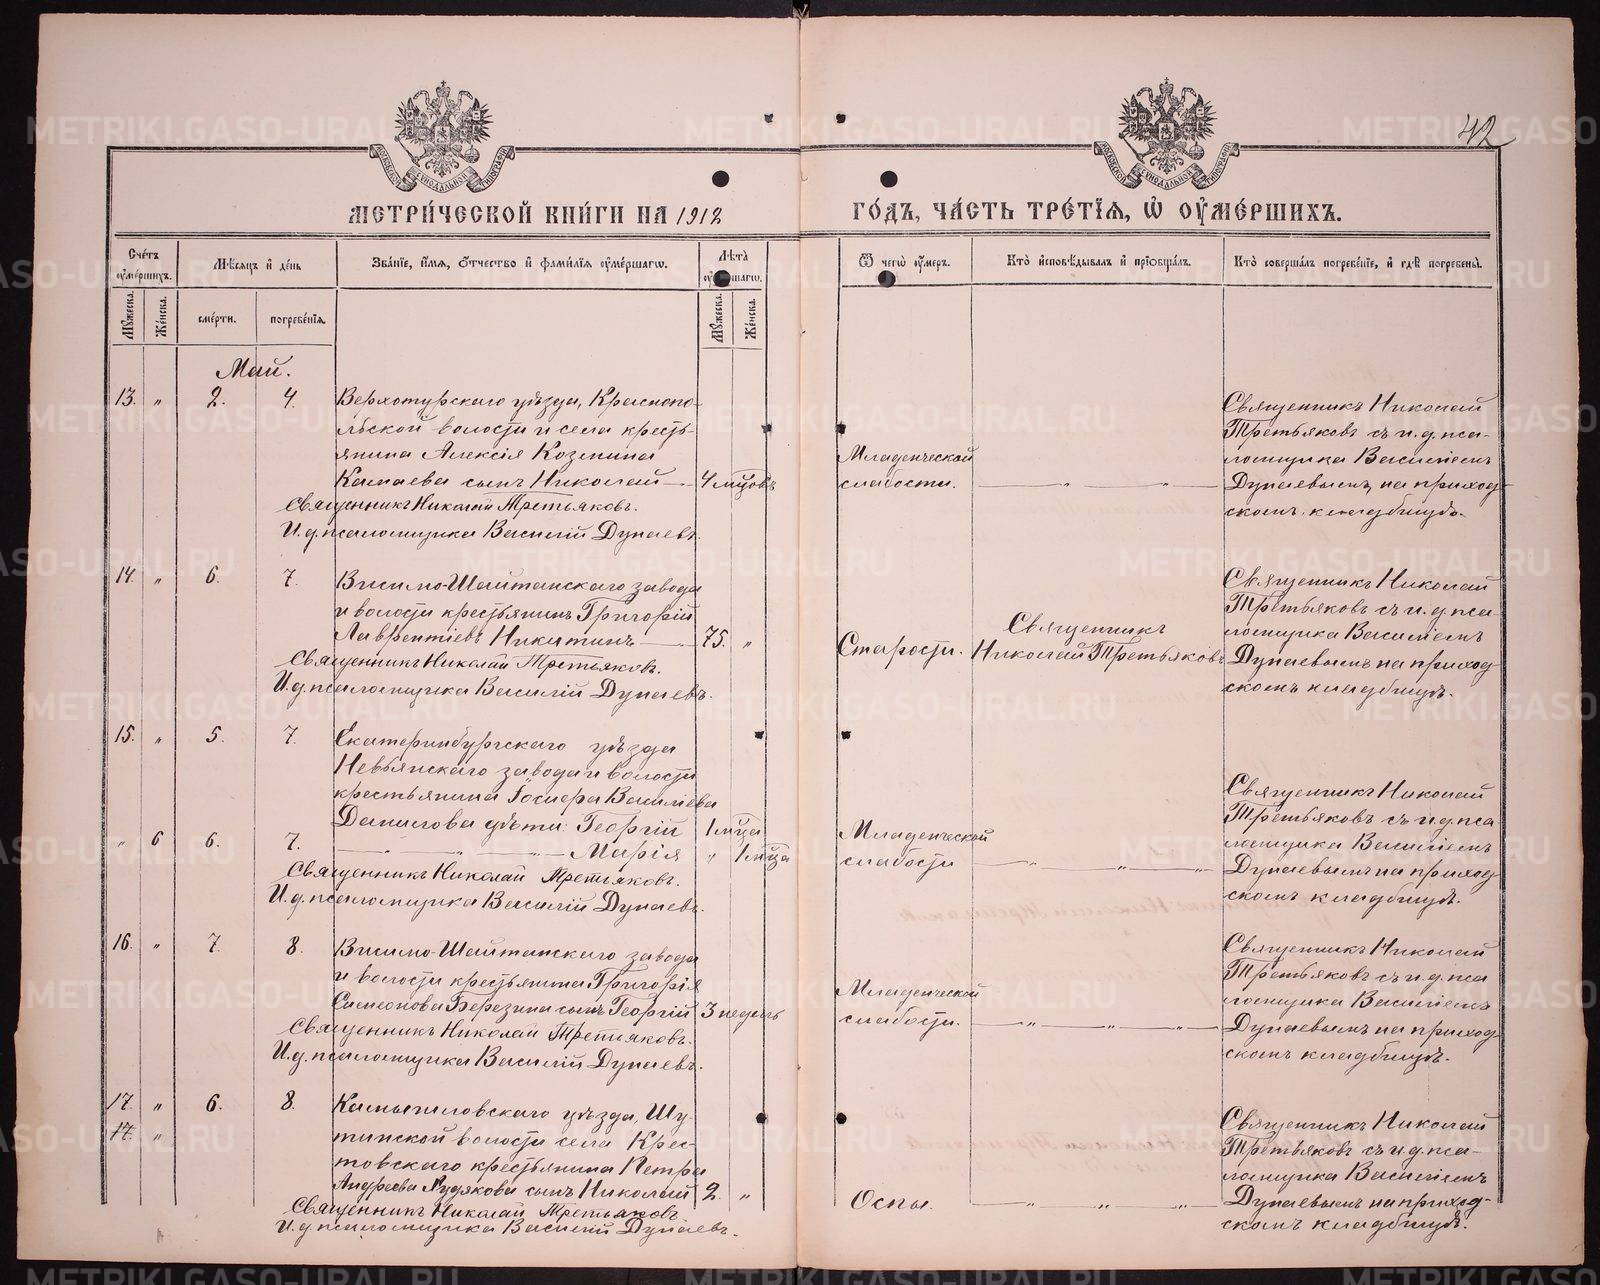 42
МЕТРИ́ЧЕСКОЙ КНИ́ГИ НА 1912
ГО́ДЪ, ЧА́СТЬ ТРЕ́ТІЯ, Ѽ ОУ҆МЕ́РШИХЪ.
Сче́тъ оу҆ме́ршихъ.
Мѣ́сяцъ и҆ де́нь
Зва́ніе, и҆́мя, ѻ҆́тчество и҆ фами́лія оу҆ме́ршагѡ.
Лѣ́та оу҆ме́ршагѡ.
Ѿ чегѡ̀ оу҆́меръ.
Кто̀ и҆сповѣ́дывалъ и҆ прїѡбща́лъ.
Кто̀ соверша́лъ погребе́ніе, и҆ гдѣ̀ погребены̀.
Му́жеска.
Же́нска.
сме́рти.
погребе́нія.
Му́жеска.
Же́нска.
Май.
13. " 2. 4. Верхотурскаго уѣзда, Краснопо-
льской волости и села кресть-
янина Алексія Козмина
Камаева сынъ Николай — 4 мцовъ
Священникъ Николай Третьяковъ.
И. д. псаломщика Василій Дунаевъ.
Младенческой
слабости.
— " — " —
Священникъ Николай
Третьяковъ съ и. д. пса-
ломщика Василіемъ
Дунаевымъ, на приход-
скомъ кладбищѣ.
14. " 6. 7. Висимо-Шайтанскаго завода
и волости крестьянинъ Григорій
Лаврентіевъ Никитинъ — 75. "
Священникъ Николай Третьяковъ.
И. д. псаломщика Василій Дунаевъ.
Старости.
Священникъ
Николай Третьяковъ
Священникъ Николай
Третьяковъ съ и. д. пса-
ломщика Василіемъ
Дунаевымъ на приход-
скомъ кладбищѣ.
15. " 5. 7. Екатеринбургскаго уѣзда
Невьянскаго завода и волости
крестьянина Іосифа Василіева
Данилова дѣти: Георгій 1 мца
" 6 6. 7. — " — " — Марія " 1 мца
Священникъ Николай Третьяковъ.
И. д. псаломщика Василій Дунаевъ.
Младенческой
слабости
— " — " —
Священникъ Николай
Третьяковъ съ и. д. пса
ломщика Василіемъ
Дунаевымъ на приход-
скомъ кладбищѣ.
16. " 7. 8. Висимо-Шайтанскаго завода
и волости крестьянина Григорія
Симеонова Березина сынъ Георгій 3 недѣль
Священникъ Николай Третьяковъ.
И. д. псаломщика Василій Дунаевъ.
Младенческой
слабости.
— " — " — " —
Священникъ Николай
Третьяковъ съ и. д. пса
ломщика Василіемъ
Дунаевымъ на приход-
скомъ кладбищѣ.
17. " 6. 8. Камышловскаго уѣзда, Шу-
17. " тинской волости села Крес-
товскаго крестьянина Петра
Андреева Худякова сынъ Николай 2. "
Священникъ Николай Третьяковъ
И. д. псаломщика Василій Дунаевъ.
Оспы.
— " — " — " —
Священникъ Николай
Третьяковъ съ и. д. пса-
ломщика Василіемъ
Дунаевымъ на приход-
скомъ кладбищѣ.
METRIKI.GASO-URAL.RU